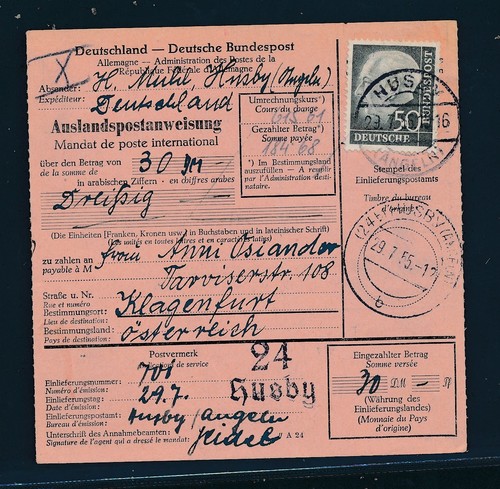 Deutschland — Deutsche Bundespost
Allemagne — Administration des Postes de la
République Fédérale d'Allemagne
X
Absender: H. Muhl, Husby (Angeln)
Expéditeur:
Deutschland
Auslandspostanweisung
Mandat de poste international
Umrechnungskurs*)
Cours du change
615 61
Gezahlter Betrag*)
Somme payée
184 68
*) Im Bestimmungsland
auszufüllen — A remplir
par l'Administration desti-
nataire.
über den Betrag von 30 DM —
de la somme de
in arabischen Ziffern - en chiffres arabes
Dreißig
(Die Einheiten [Franken, Kronen usw.] in Buchstaben und in Landessprache)
(Les unités en toutes lettres et en caractères latins)
zu zahlen an Frau Anni Osiander
payable à M
Tarviserstr. 108
Straße u. Nr.
Rue et numéro
Bestimmungsort: Klagenfurt
Lieu de destination:
Bestimmungsland: Österreich
Pays de destination:
50
DEUTSCHE
BUNDESPOST
HUSBY
29.7. -16
(ANGELN)
Stempel des
Einlieferungspostamts
Timbre du bureau
d'origine
(24) HUSBY (ANGELN)
29.7.55.-12
c
Postvermerk
de service
Einlieferungsnummer: 701
Numéro d'émission:
Einlieferungstag: 29.7.
Date d'émission:
Einlieferungspostamt: Husby/Angeln
Bureau d'émission:
Unterschrift des Annahmebeamten:
Signature de l'agent qui a dressé le mandat:
A 24
24
Husby
Eingezahlter Betrag
Somme versée
30 DM — Pf
(Währung des
Einlieferungslandes)
(Monnaie du Pays
d'origine)